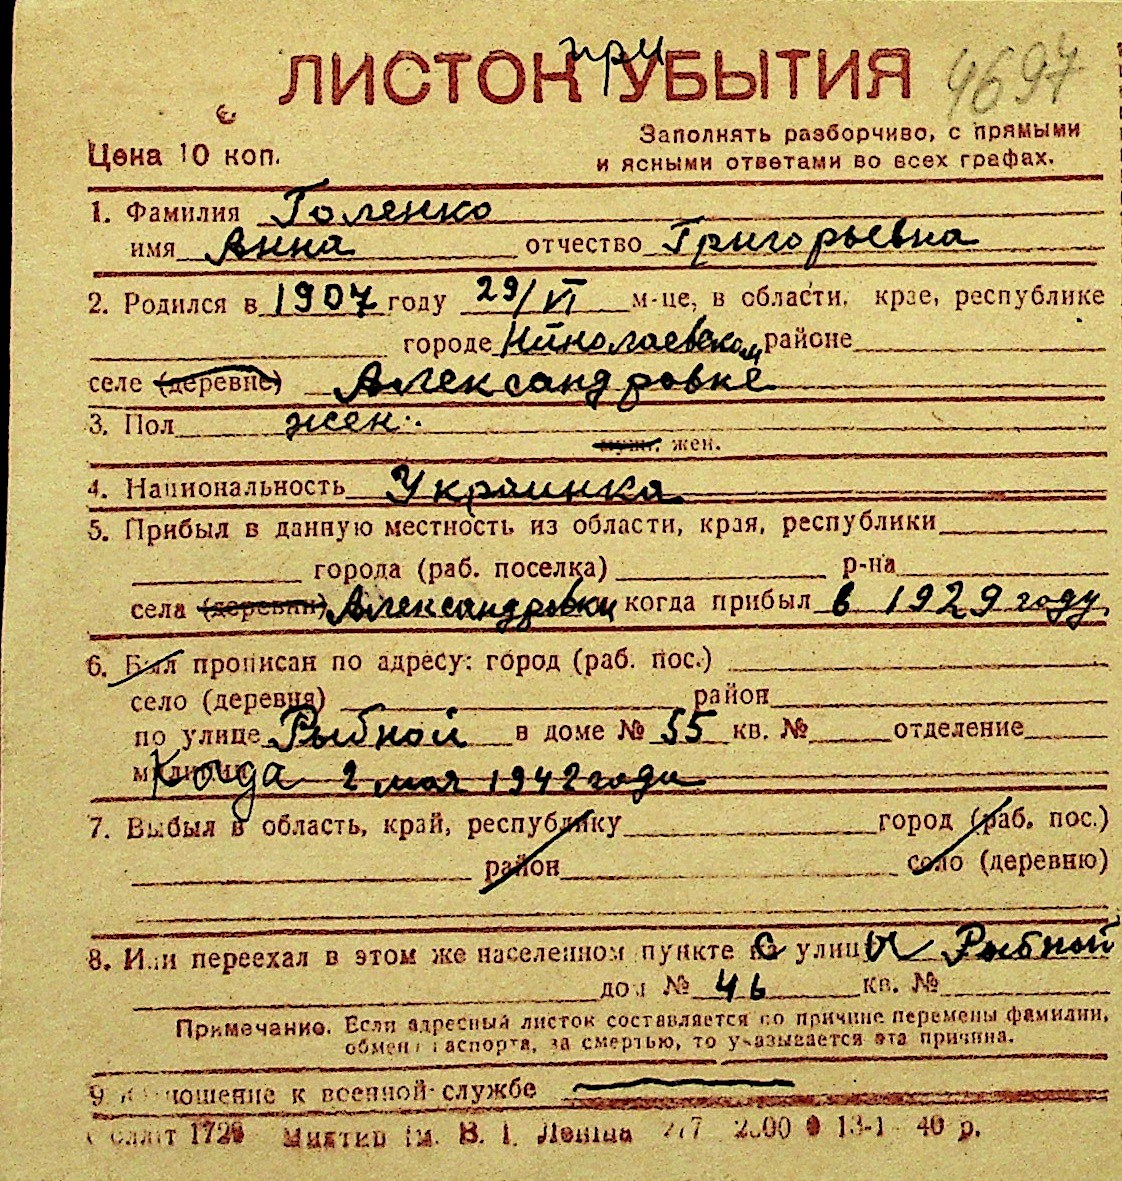 ЛИСТОК при УБЫТИЯ 4697
Цена 10 коп.
Заполнять разборчиво, с прямыми
и ясными ответами во всех графах.
1. Фамилия Голенко
имя Анна отчество Григорьевна
2. Родился в 1907 году 29/VI м-це, в области, крае, республике
городе Николаевском районе
селе (деревне) Александровке
3. Пол жен.
муж. жен.
4. Национальность Украинка
5. Прибыл в данную местность из области, края, республики
города (раб. поселка) р-на
села (деревни) Александровки когда прибыл в 1929 году
6. Был прописан по адресу: город (раб. пос.)
село (деревня) район
по улице Рыбной в доме № 55 кв. № отделение
милиции Когда 2 мая 1942 года
7. Выбыл в область, край, республику город (раб. пос.)
район село (деревню)
8. Или переехал в этом же населенном пункте с улицы Рыбной
дом № 46 кв. №
Примечание. Если адресный листок составляется по причине перемены фамилии,
обмена паспорта, за смертью, то указывается эта причина.
9 отношение к военной службе
Облліт 172 ім. В. І. Леніна 277 13-1 40 р.